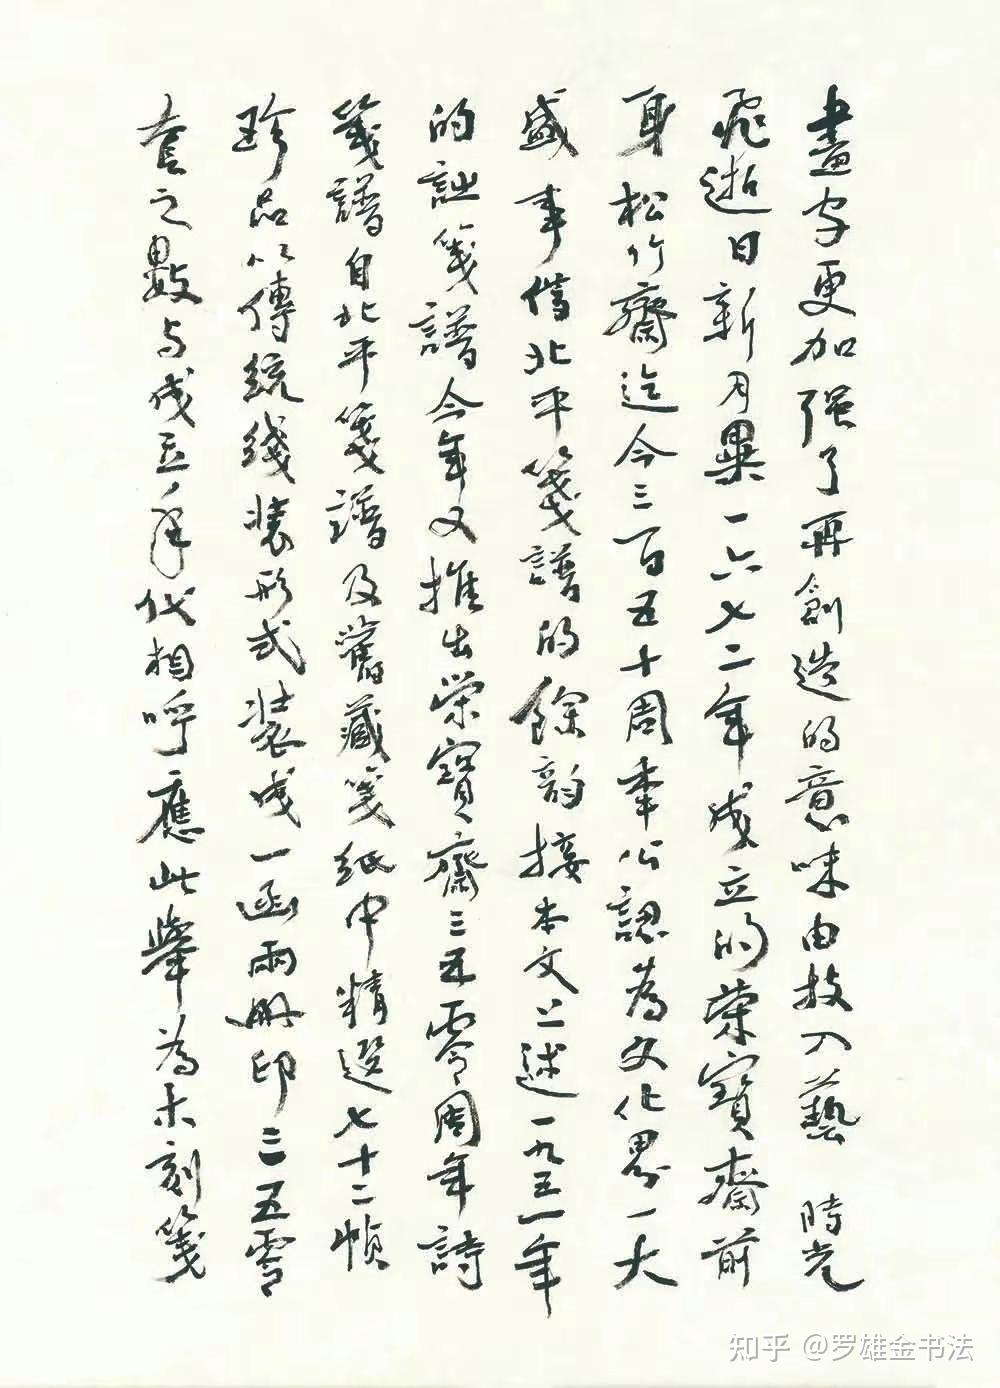 畫字更加强了再創造的意味由技入藝 時光
飛逝日新月異一六七二年成立的榮寶齋前
身松竹齋迄今三百五十周年公認為文化界一大
盛事借北平箋譜的餘韵接本文上述一九五一年
的詩箋譜今年又推出榮寶齋三五零周年詩
箋譜自北平箋譜及舊藏箋紙中精選七十二幀
珍品以傳統綫裝形式裝成一函兩冊印三五零
套之數与成立年代相呼應此舉為木刻箋
知乎 @罗雄金书法